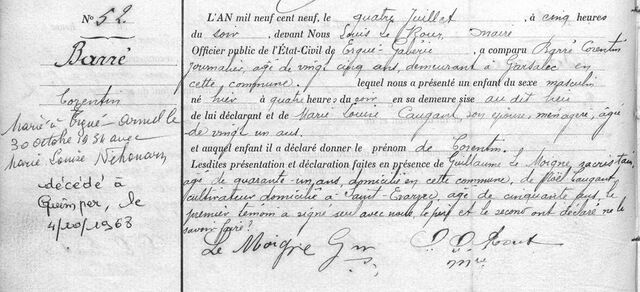 N° 52
Barré
Corentin
Marié à Ergué-Armel le
30 octobre 1934 avec
Marie Louise Néhouarn
décédé à
Quimper, le
4/10/1963
L'AN mil neuf cent neuf, le quatre Juillet, à cinq heures
du soir, devant Nous Louis Le Roux, maire
Officier public de l'État-Civil de Ergué-Gabéric, a comparu Barré Corentin
journalier, âgé de vingt cinq ans, demeurant à en
cette commune, lequel nous a présenté un enfant du sexe masculin
né hier à quatre heures du soir en sa demeure sise au dit lieu
de lui déclarant et de Marie Louise Caugant, son épouse, ménagère, âgée
de vingt un ans.
et auquel enfant il a déclaré donner le prénom de Corentin.
Lesdites présentation et déclaration faites en présence de Guillaume Le Moigne, sacristain,
âgé de quarante-un ans, domicilié en cette commune, de Noël Caugant,
cultivateur domicilié à Saint-Evarzec, âgé de cinquante ans, le
premier témoin a signé seul avec nous, le père et le second ont déclaré ne le
savoir faire.
Le Moigne Gme